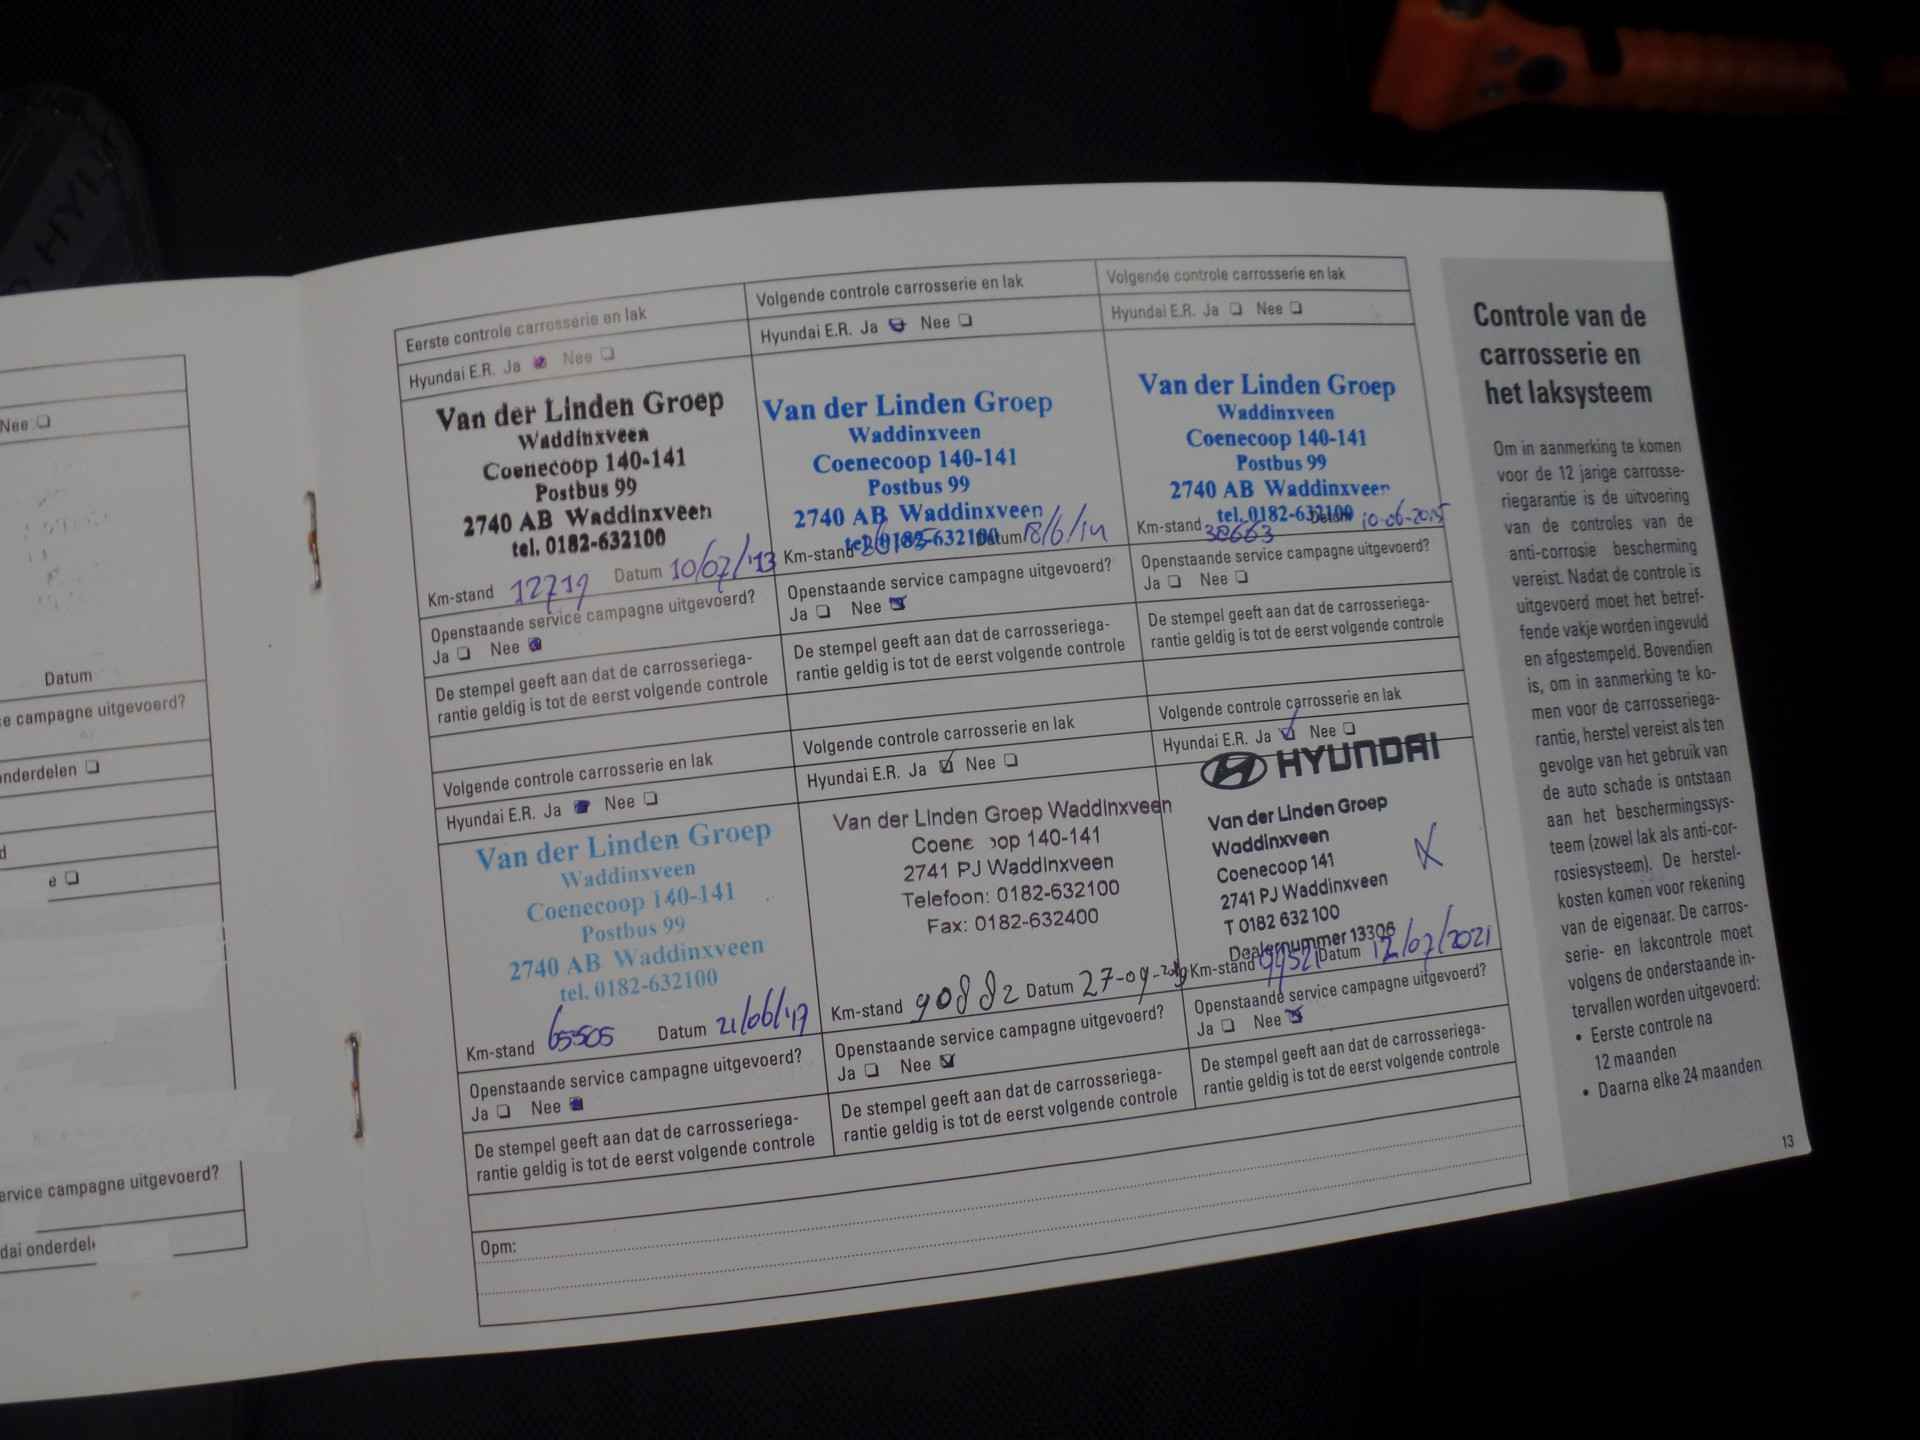 Nee
Datum
e campagne uitgevoerd?
onderdelen
d
e
ervice campagne uitgevoerd?
dai onderdel
Eerste controle carrosserie en lak
Hyundai E.R. Ja Nee
Van der Linden Groep
Waddinxveen
Coenecoop 140-141
Postbus 99
2740 AB Waddinxveen
tel. 0182-632100
Km-stand 12719 Datum 10/07/'13
Openstaande service campagne uitgevoerd?
Ja Nee
De stempel geeft aan dat de carrosseriega-
rantie geldig is tot de eerst volgende controle
Volgende controle carrosserie en lak
Hyundai E.R. Ja Nee
Van der Linden Groep
Waddinxveen
Coenecoop 140-141
Postbus 99
2740 AB Waddinxveen
tel. 0182-632100
Km-stand Datum 18/6/14
Openstaande service campagne uitgevoerd?
Ja Nee
De stempel geeft aan dat de carrosseriega-
rantie geldig is tot de eerst volgende controle
Volgende controle carrosserie en lak
Hyundai E.R. Ja Nee
Van der Linden Groep
Waddinxveen
Coenecoop 140-141
Postbus 99
2740 AB Waddinxveen
tel. 0182-632100
Km-stand 38663 Datum 10-06-2015
Openstaande service campagne uitgevoerd?
Ja Nee
De stempel geeft aan dat de carrosseriega-
rantie geldig is tot de eerst volgende controle
Volgende controle carrosserie en lak
Hyundai E.R. Ja Nee
Van der Linden Groep
Waddinxveen
Coenecoop 140-141
Postbus 99
2740 AB Waddinxveen
tel. 0182-632100
Km-stand 65505 Datum 21/06/'17
Openstaande service campagne uitgevoerd?
Ja Nee
De stempel geeft aan dat de carrosseriega-
rantie geldig is tot de eerst volgende controle
Volgende controle carrosserie en lak
Hyundai E.R. Ja Nee
Van der Linden Groep Waddinxveen
Coene oop 140-141
2741 PJ Waddinxveen
Telefoon: 0182-632100
Fax: 0182-632400
Km-stand 90882 Datum 27-09-2019
Openstaande service campagne uitgevoerd?
Ja Nee
De stempel geeft aan dat de carrosseriega-
rantie geldig is tot de eerst volgende controle
Volgende controle carrosserie en lak
Hyundai E.R. Ja Nee
HYUNDAI
Van der Linden Groep
Waddinxveen
Coenecoop 141
2741 PJ Waddinxveen
T 0182 632 100
Dealernummer 13306
Km-stand 99521 Datum 12/07/2021
Openstaande service campagne uitgevoerd?
Ja Nee
De stempel geeft aan dat de carrosseriega-
rantie geldig is tot de eerst volgende controle
Opm:
Controle van de
carrosserie en
het laksysteem
Om in aanmerking te komen
voor de 12 jarige carrosse-
riegarantie is de uitvoering
van de controles van de
anti-corrosie bescherming
vereist. Nadat de controle is
uitgevoerd moet het betref-
fende vakje worden ingevuld
en afgestempeld. Bovendien
is, om in aanmerking te ko-
men voor de carrosseriega-
rantie, herstel vereist als ten
gevolge van het gebruik van
de auto schade is ontstaan
aan het beschermingssys-
teem (zowel lak als anti-cor-
rosiesysteem). De herstel-
kosten komen voor rekening
van de eigenaar. De carros-
serie- en lakcontrole moet
volgens de onderstaande in-
tervallen worden uitgevoerd:
• Eerste controle na
12 maanden
• Daarna elke 24 maanden
13